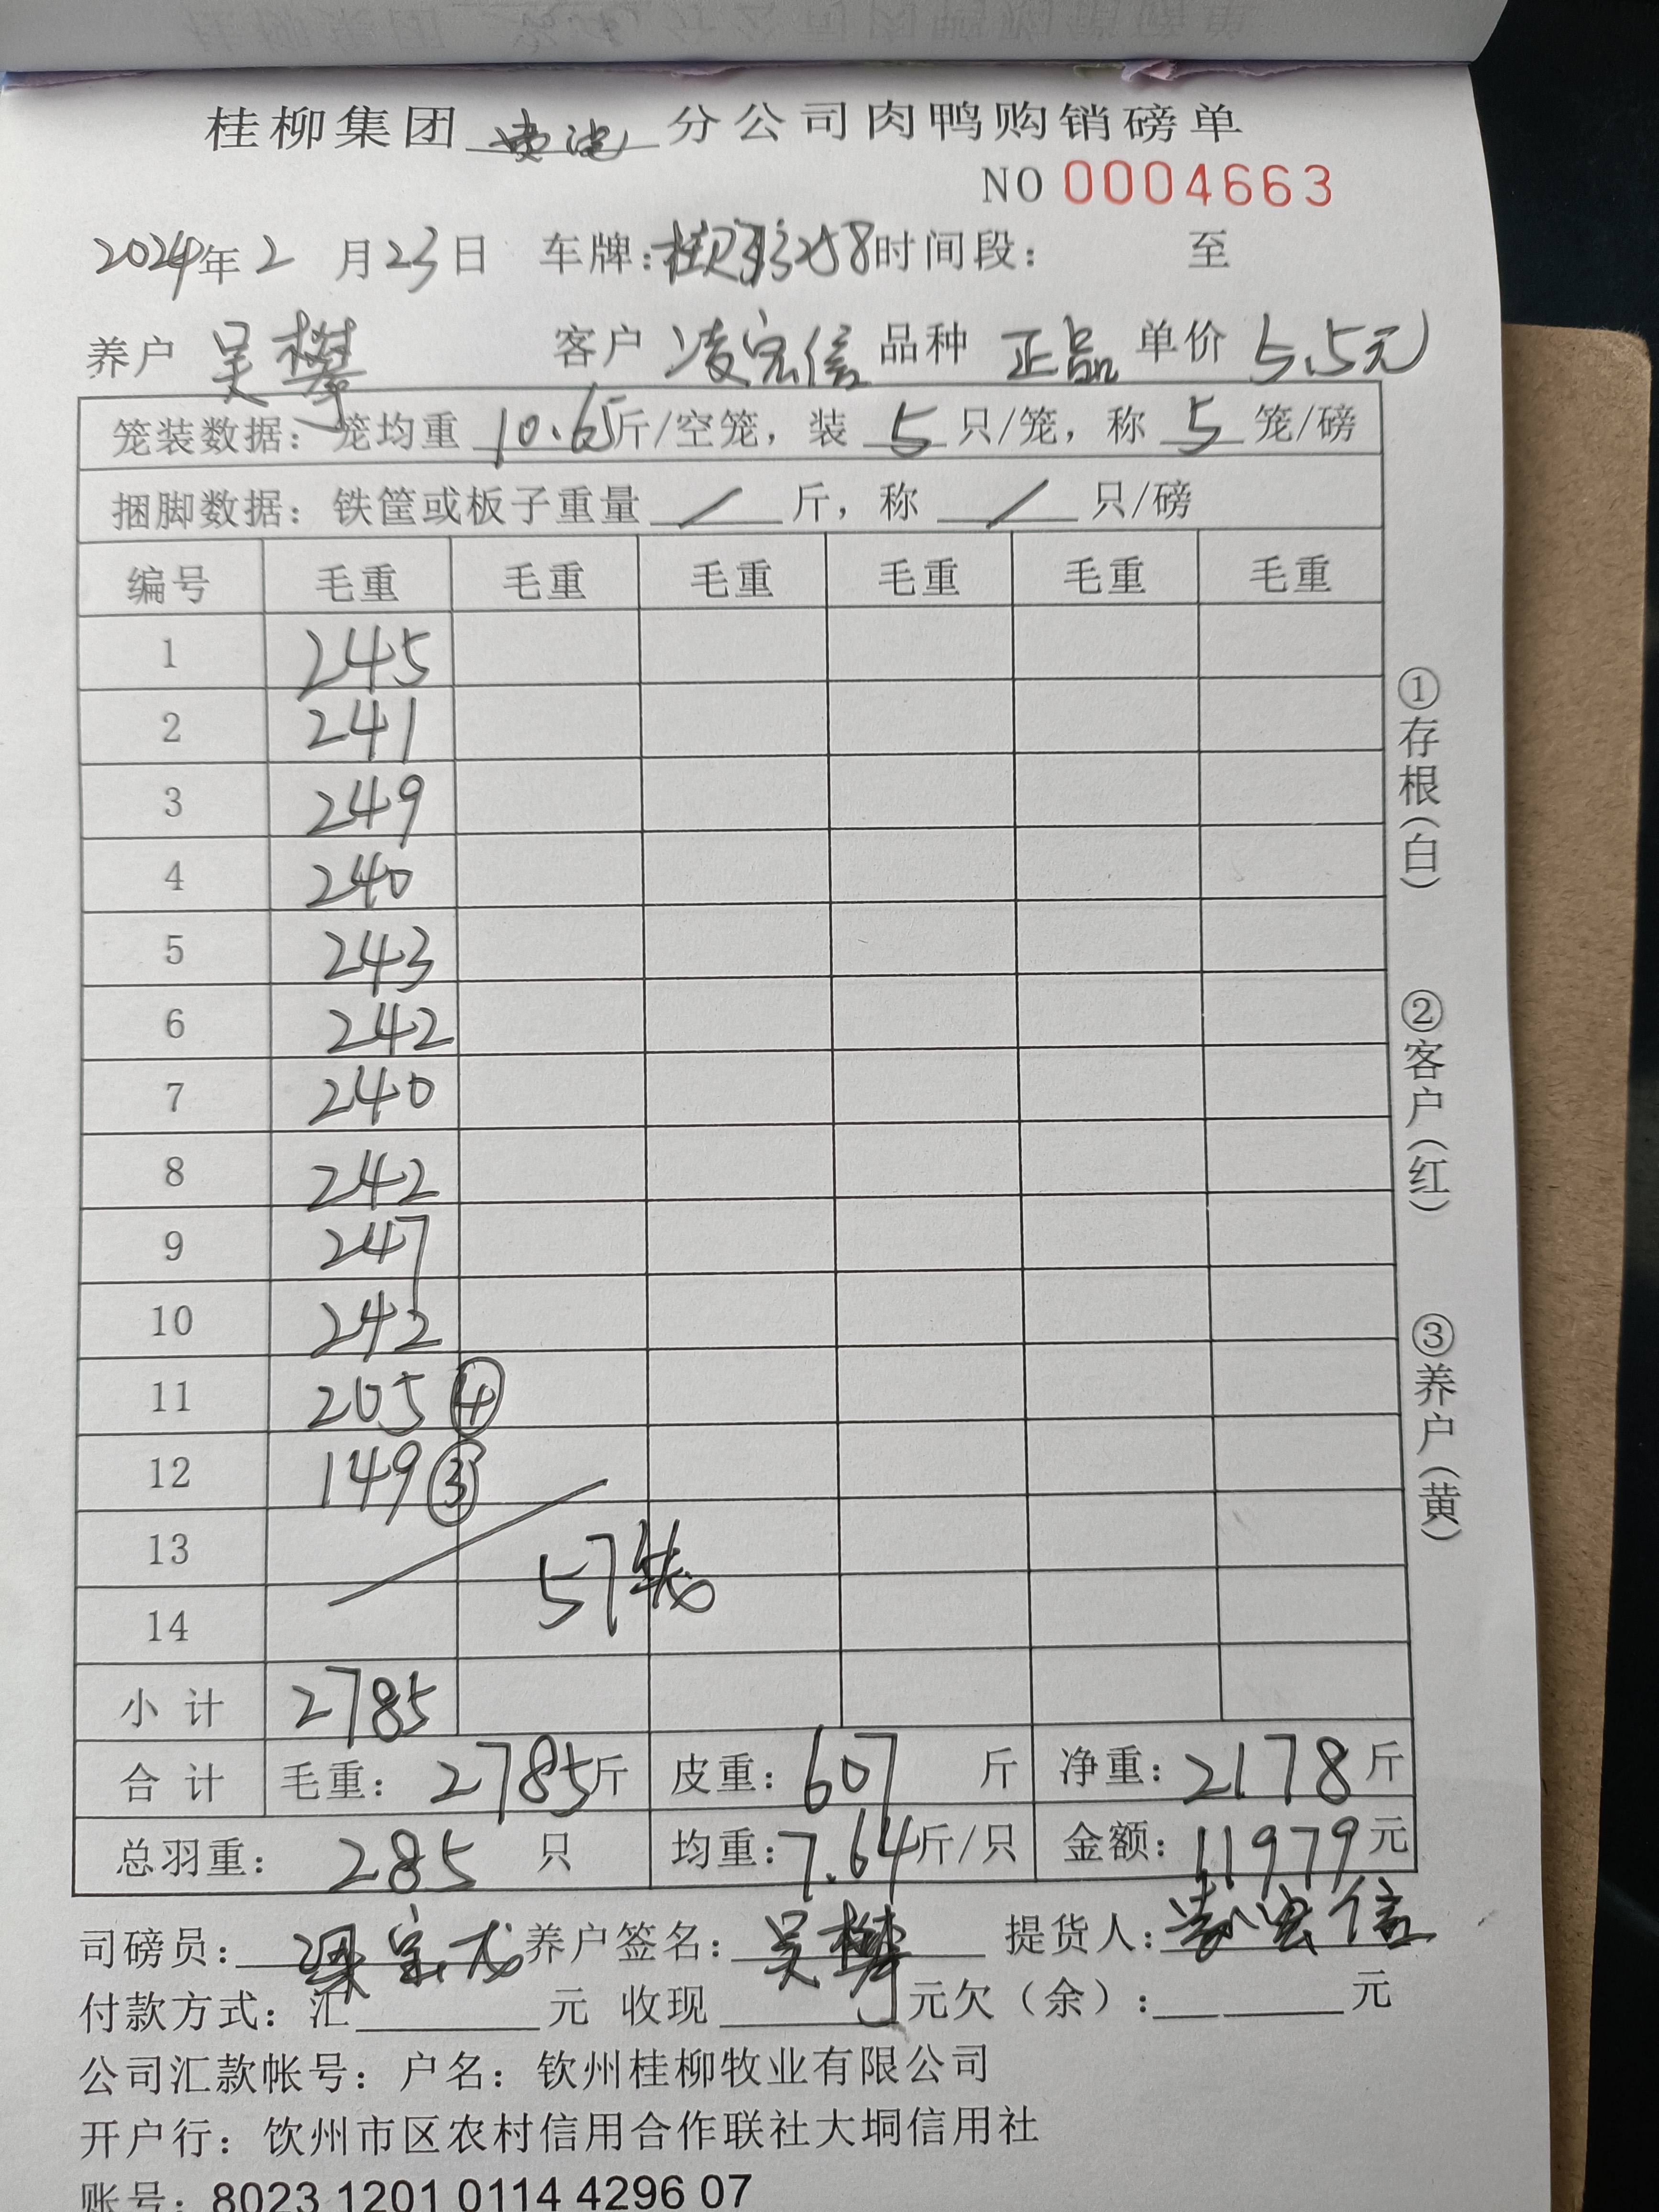 桂柳集团 分公司肉鸭购销磅单
NO 0004663
2024年2月23日 车牌: 时间段： 至
养户 吴攀 客户 凌宏信 品种 正品 单价 5.5元
笼装数据：笼均重 10.65斤/空笼，装 5 只/笼，称 5 笼/磅
捆脚数据：铁筐或板子重量 / 斤，称 / 只/磅
编号 毛重 毛重 毛重 毛重 毛重 毛重
1 245
2 241
3 249
4 240
5 243
6 242
7 240
8 242
9 247
10 242
11 205 ④
12 149 ③
13
57笼
14
小计 2785
合计 毛重：2785斤 皮重：607 斤 净重：2178斤
总羽重：285 只 均重：7.64斤/只 金额：11979元
司磅员： 养户签名：吴攀 提货人：凌宏信
付款方式：汇 元 收现 元欠（余）： 元
公司汇款帐号：户名：钦州桂柳牧业有限公司
开户行：饮州市区农村信用合作联社大垌信用社
账号：8023 1201 0114 4296 07
①存根(白)
②客户(红)
③养户(黄)